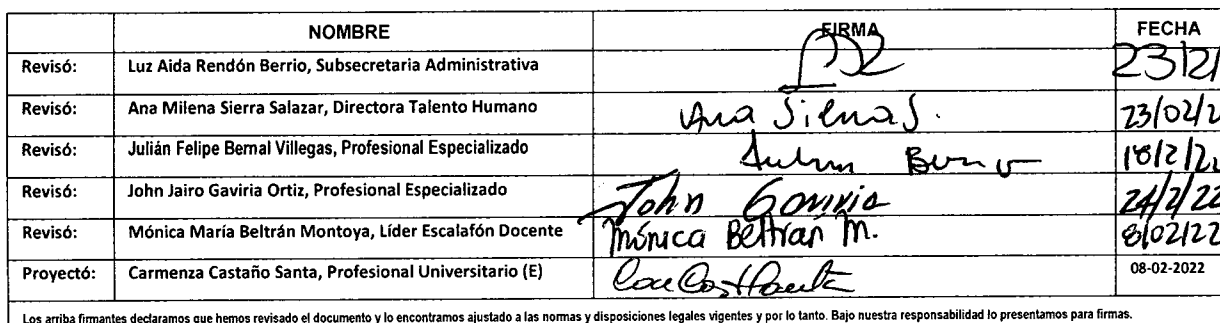 NOMBRE FIRMA FECHA
Revisó: Luz Aida Rendón Berrio, Subsecretaria Administrativa 23/2/
Revisó: Ana Milena Sierra Salazar, Directora Talento Humano Ana Sierra S. 23/02/2
Revisó: Julián Felipe Bernal Villegas, Profesional Especializado 18/2/22
Revisó: John Jairo Gaviria Ortiz, Profesional Especializado John Gaviria 24/2/22
Revisó: Mónica María Beltrán Montoya, Líder Escalafón Docente Mónica Beltrán M. 8/02/22
Proyectó: Carmenza Castaño Santa, Profesional Universitario (E) 08-02-2022
Los arriba firmantes declaramos que hemos revisado el documento y lo encontramos ajustado a las normas y disposiciones legales vigentes y por lo tanto. Bajo nuestra responsabilidad lo presentamos para firmas.